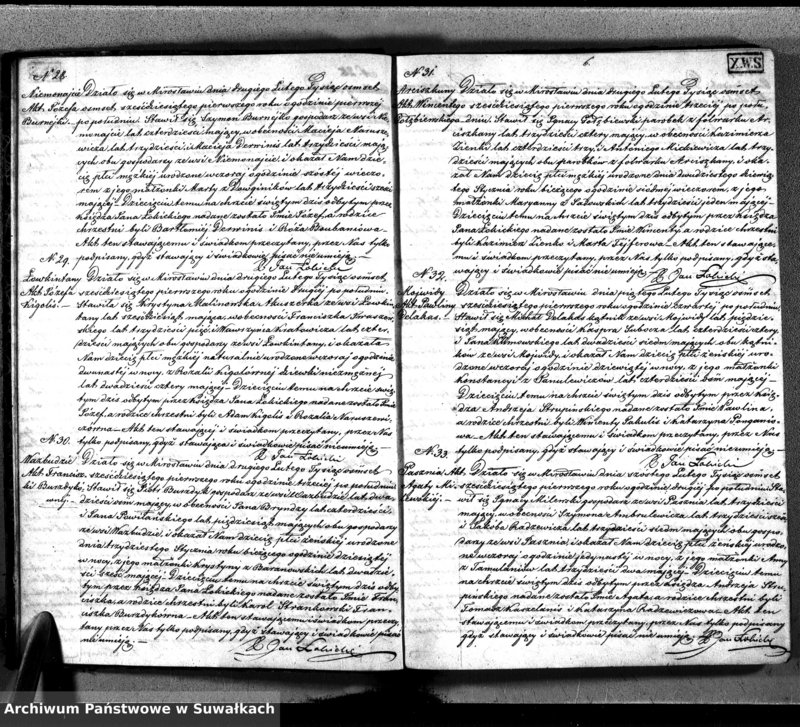 N. 28.
Niemonajcie Działo się w Mirosławiu dnia drugiego Lutego Tysiąc ośmset
Akt Józefa ośmset, sześćdziesiątego pierwszego roku o godzinie pierwszej
Burnejko po południu Stawił się Szymon Burnejko gospodarz ze wsi Nie-
monajcie lat czterdzieści mający, w obecności Macieja Narusze-
wicza lat trzydzieści, i Macieja Derwinis lat trzydzieści mają-
cych obu gospodarzy ze wsi Niemonajcie i okazał Nam dzie-
cię płci męzkiej urodzone wczoraj o godzinie szóstej wieczo-
rem z jego małżonki Marty z Dawginików lat trzydzieści sześć
mającej. Dziecięciu temu na chrzcie świętym dziś odbytym przez
Księdza Jana Łobickiego nadane zostało Imie Józef, a rodzice
chrzestni byli Bartłomiej Derwinis i Róża Boubaniówna
Akt ten stawającemu i świadkom przeczytany, przez Nas tylko
podpisany, gdyż stawający i świadkowie pisać nie umieją
X. Jan Łobicki
N. 29.
Lewkintany Działo się w Mirosławiu dnia drugiego Lutego Tysiąc ośmset,
Akt Józefa sześćdziesiątego pierwszego roku o godzinie drugiej po południu
Kigolis Stawiła się Krystyna Malinowska Akuszerka ze wsi Lewkin-
tany lat sześćdziesiąt mająca, w obecności Franciszka Kraszew-
skiego lat trzydzieści pięć i Wawrzyńca Kwatowicza lat czter-
dzieści mających obu gospodarzy ze wsi Lewkintany, i okazała
Nam dziecię płci męzkiej naturalnie urodzone wczoraj o godzinie
dwunastej w nocy, z Rozalii Kigolównej dziewki niezamężnej
lat dwadzieścia cztery mającej. Dziecięciu temu na chrzcie świę-
tym dziś odbytym przez Księdza Jana Łobickiego nadane zostało Imie
Józef, a rodzice chrzestni byli Adam Kigolis i Rozalia Naruszewi-
czówna Akt ten stawającej i świadkom przeczytany, przez Nas
tylko podpisany, gdyż stawająca i świadkowie pisać nie umieją
X. Jan Łobicki
N. 30.
Warbudzie Działo się w Mirosławiu dnia drugiego Lutego Tysiąc ośmset
Akt Francisz- sześćdziesiątego pierwszego roku o godzinie trzeciej po południu
ki Burzdyk- Stawił się Piotr Burzdyk gospodarz ze wsi Warbudzie lat dwa-
wny dzieścia ośm mający, w obecności Jana Bryndzy lat czterdzieści
i Jana Powilańskiego lat pięćdziesiąt mających obu gospodarzy
ze wsi Warbudzie, i okazał Nam dziecię płci żeńskiej urodzone
dnia trzydziestego Stycznia roku bieżącego o godzinie dziesiątej
w nocy, z jego małżonki Krystyny z Baranowskich lat dwadzie-
ścia sześć mającej. Dziecięciu temu na chrzcie świętym dziś odby-
tym przez Księdza Jana Łobickiego nadane zostało Imie Fran-
ciszka, a rodzice chrzestni byli Karol Krankowski i Fran-
ciszka Burzdykówna Akt ten stawającemu i świadkom przeczy-
tany przez Nas tylko podpisany, gdyż stawający i świadkowie pisać
nie umieją
X. Jan Łobicki
6
X.W.S.
N. 31.
Arciszkuny Działo się w Mirosławiu dnia drugiego Lutego Tysiąc ośmset
Akt Wincentego sześćdziesiątego pierwszego roku o godzinie trzeciej po połu-
Gołębiewskiego dniu Stawił się Ignacy Gołębiewski parobek z folwarku Ar-
ciszkany lat trzydzieści cztery mający w obecności Kazimierza
Zienko lat czterdzieści trzy, i Antoniego Mickiewicza lat trzy-
dzieści mających obu parobków z folwarku Arciszkany, i oka-
zał Nam dziecię płci męzkiej urodzone dnia dwudziestego dziewią-
tego Stycznia roku bieżącego o godzinie siódmej wieczorem, z jego
małżonki Maryanny z Sokowskich lat trzydzieści jeden mającej
Dziecięciu temu na chrzcie świętym dziś odbytym przez Księdza
Jana Łobickiego nadane zostało Imie Wincenty, a rodzice chrzestni
byli Kazimierz Zienko i Marta Fejferowa Akt ten stawające-
mu i świadkom przeczytany, przez Nas tylko podpisany, gdyż sta-
wający i świadkowie pisać nie umieją
X. Jan Łobicki
N. 32.
Mojwidy Działo się w Mirosławiu dnia piątego Lutego Tysiąc ośmset,
Akt Pauliny sześćdziesiątego pierwszego roku o godzinie czwartej po południu
Pelakas. Stawił się Michał Pelakas kątnik ze wsi Mojwidy lat pięćdzie-
siąt mający, w obecności Kaspra Lubacza lat czterdzieści cztery
i Jana Klimowskiego lat dwadzieścia siedem mających obu kątni-
ków ze wsi Mojwidy, i okazał Nam dziecię płci żeńskiej uro-
dzone wczoraj o godzinie dziewiątej w nocy, z jego małżonki
Konstancyi z Samulewiczów lat czterdzieści ośm mającej
Dziecięciu temu na chrzcie świętym dziś odbytym przez Księ-
dza Andrzeja Skupińskiego nadane zostało Imie Pawlina,
a rodzice chrzestni byli Wincenty Pakulis i Katarzyna Pangonio-
wa Akt ten stawającemu i świadkom przeczytany, przez Nas
tylko podpisany, gdyż stawający i świadkowie pisać nie umieją
X. Jan Łobicki
N. 33.
Pasznia Akt Działo się w Mirosławiu dnia szóstego Lutego Tysiąc ośmset
Agaty Mi- sześćdziesiątego pierwszego roku o godzinie drugiej po południu Sta-
lewskiej wił się Ignacy Milewski gospodarz ze wsi Pasznia lat trzydzieści
mający, w obecności Szymona Ambrulewicza lat trzydzieści sześć
i Jakóba Radzewicza lat trzydzieści siedm mających obu gospo-
darzy ze wsi Pasznia, i okazał Nam dziecię płci żeńskiej urodzo-
ne wczoraj o godzinie jedynastej w nocy, z jego małżonki Anny
z Tamuleniów lat trzydzieści dwa mającej Dziecięciu temu
na chrzcie świętym dziś odbytym przez Księdza Andrzeja Sku-
pińskiego nadane zostało Imie Agata, a rodzice chrzestni byli
Tomasz Karszelanis i Katarzyna Radzewiczowa Akt ten
stawającemu i świadkom przeczytany, przez Nas tylko podpisany
gdyż stawający i świadkowie pisać nie umieją
X. Jan Łobicki
Archiwum Państwowe w Suwałkach